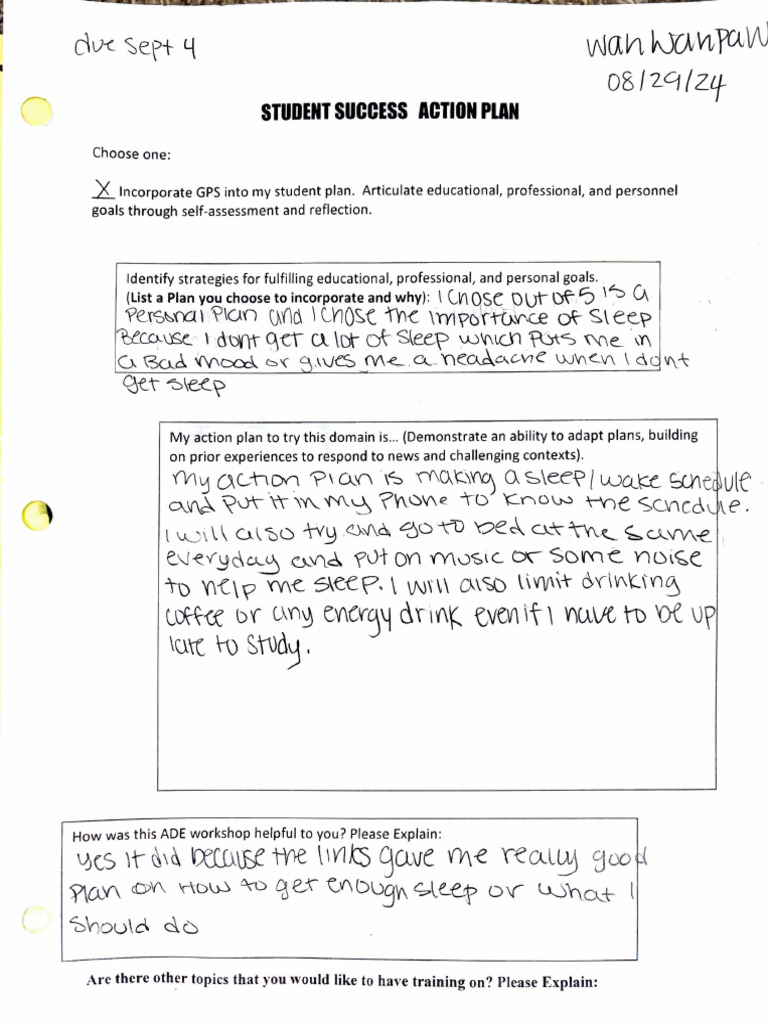 due sept 4
wanwanpaw
08/29/24
STUDENT SUCCESS ACTION PLAN
Choose one:
X Incorporate GPS into my student plan. Articulate educational, professional, and personnel
goals through self-assessment and reflection.
Identify strategies for fulfilling educational, professional, and personal goals.
(List a Plan you choose to incorporate and why): I chose out of 5 is a
Personal Plan and I chose the importance of Sleep
Because I dont get a lot of sleep which puts me in
a Bad mood or gives me a headache when I dont
get sleep
My action plan to try this domain is... (Demonstrate an ability to adapt plans, building
on prior experiences to respond to news and challenging contexts).
My action Plan is making a sleep/wake schedule
and put it in my Phone to know the schedule.
I will also try and go to bed at the same
everyday and put on music or some noise
to help me sleep. I will also limit drinking
coffee or any energy drink even if I have to be up
late to study.
How was this ADE workshop helpful to you? Please Explain:
yes it did because the links gave me really good
Plan on How to get enough sleep or what I
should do
Are there other topics that you would like to have training on? Please Explain: